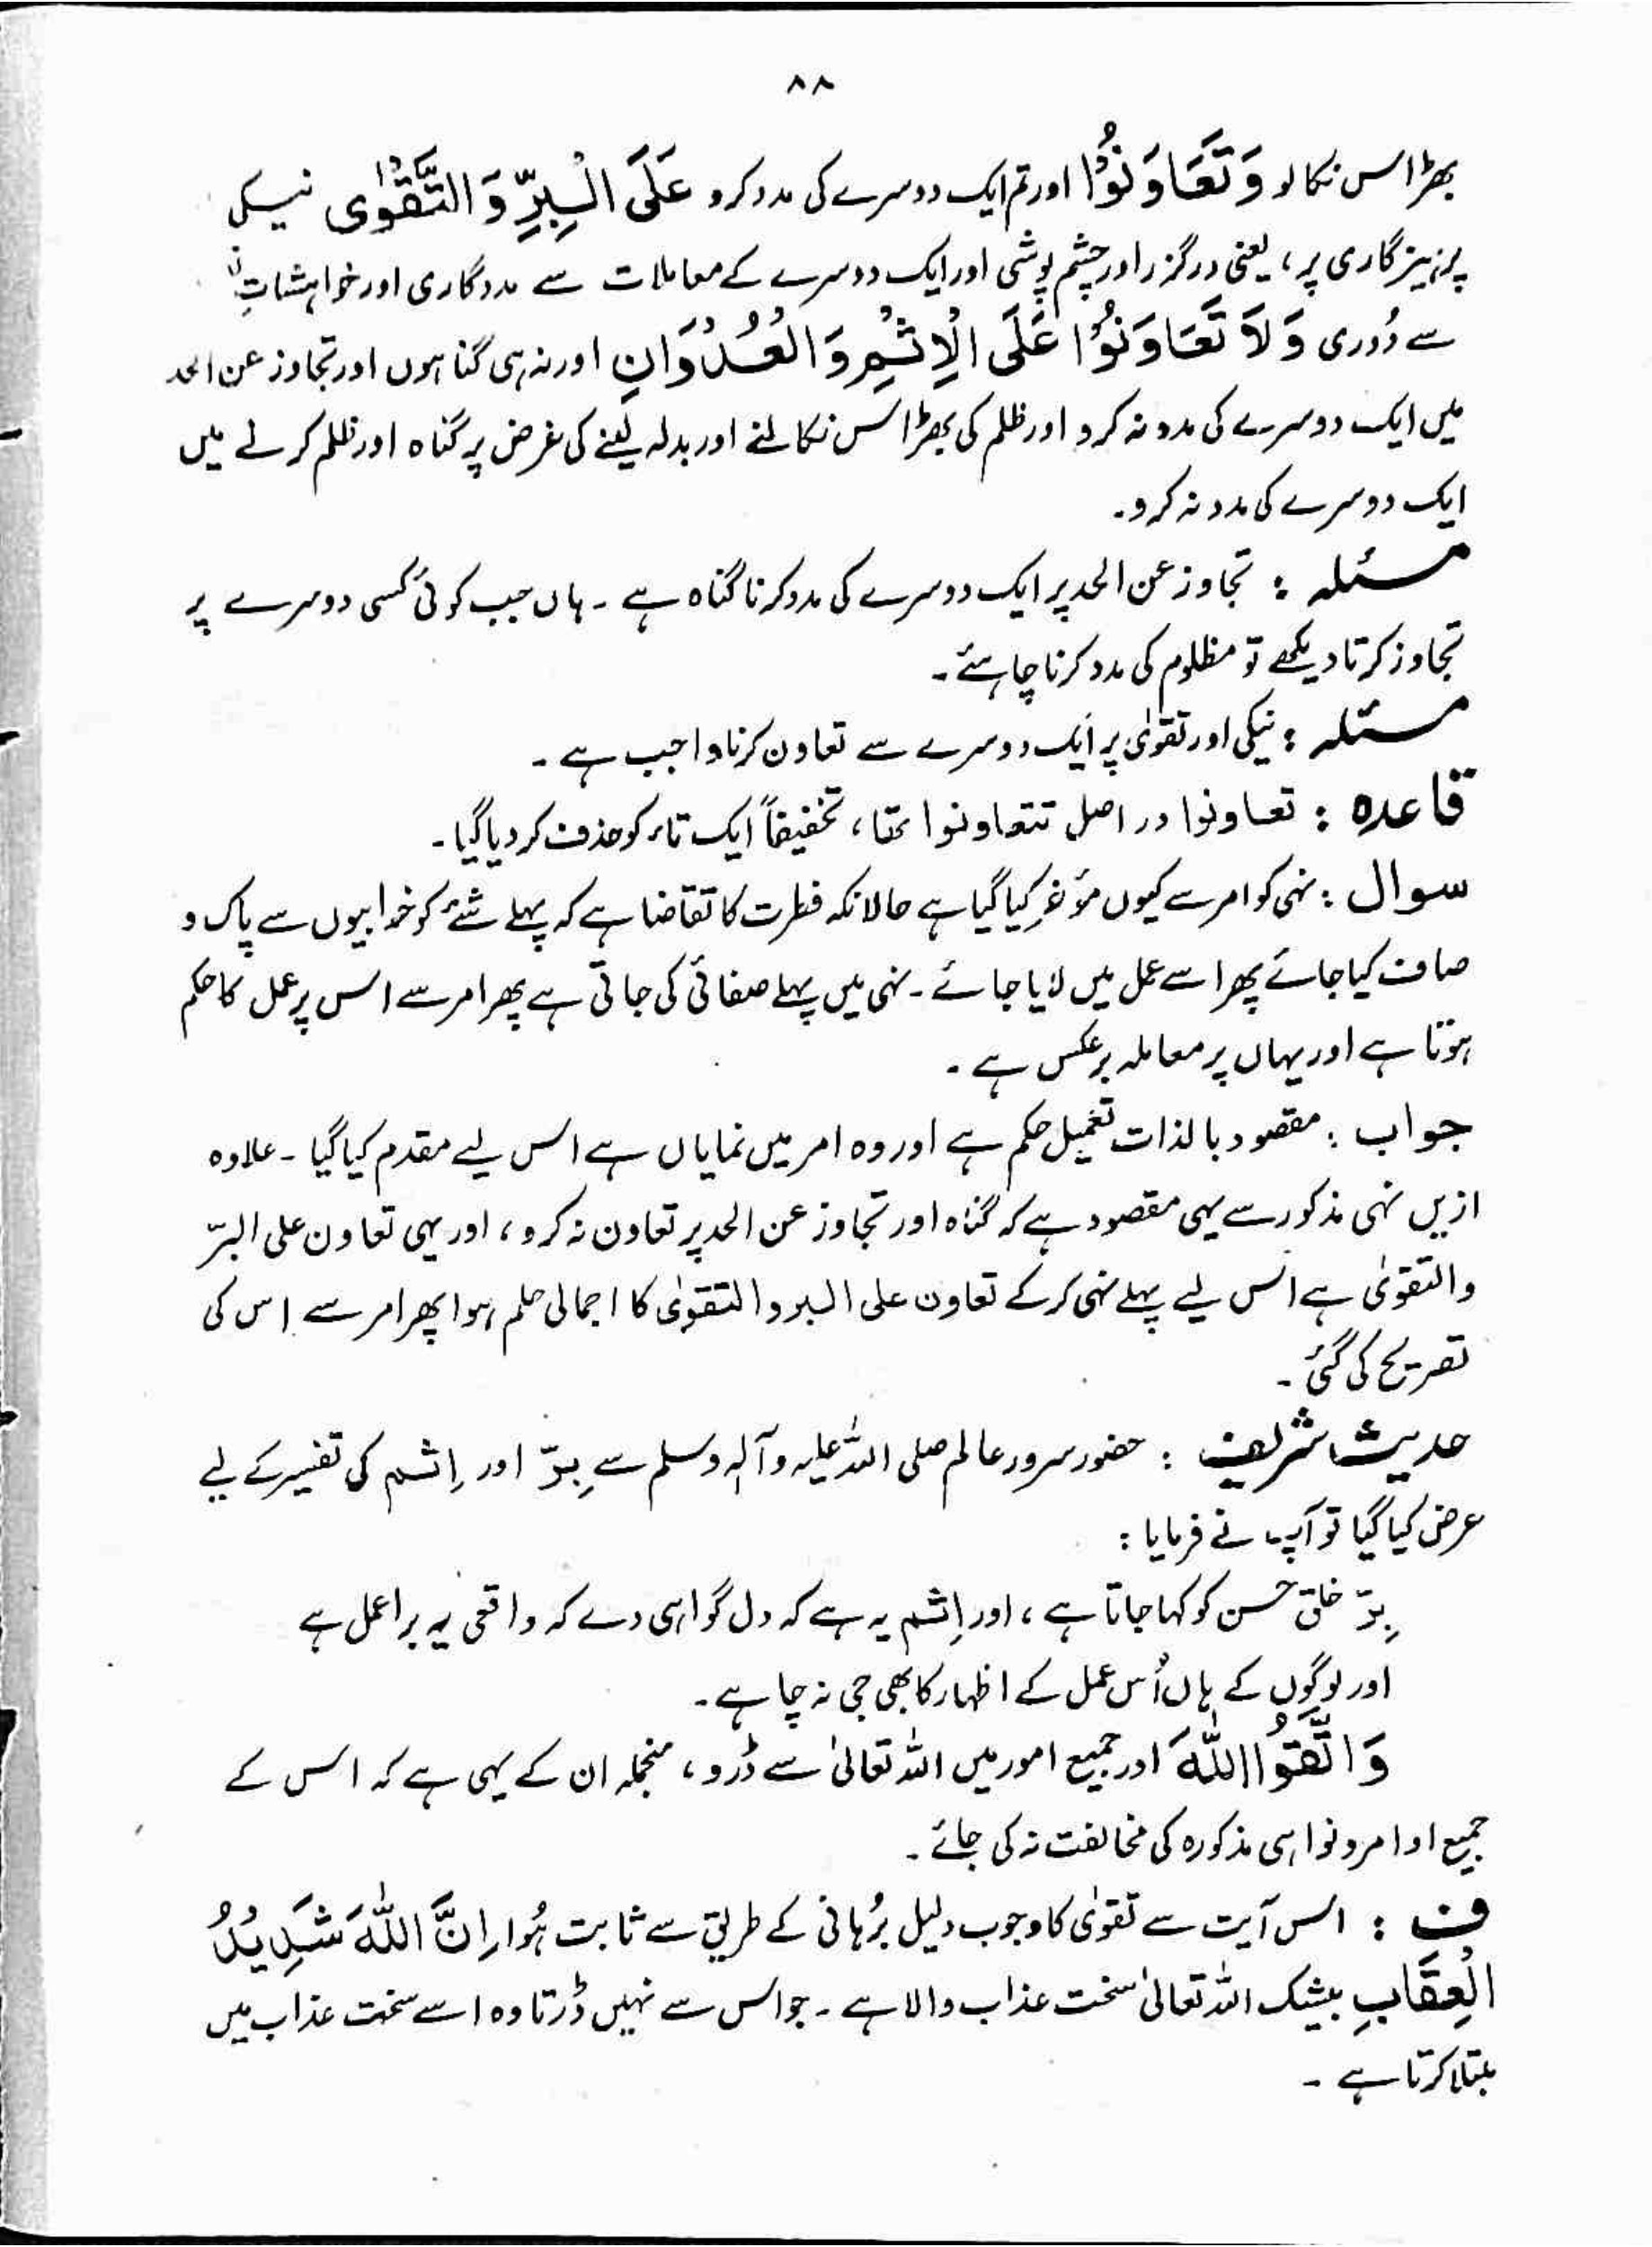 ۸۸
بھڑاس نکالو وَتَعَاوَنُوْا اور تم ایک دوسرے کی مدد کرو عَلَى الْبِرِّ وَالتَّقْوٰى نیکی
پرہیزگاری پر، یعنی درگزر اور چشم پوشی اور ایک دوسرے کے معاملات سے مددگاری اور خواہشاتِ
سے دُوری وَلَا تَعَاوَنُوْا عَلَى الْاِثْمِ وَالْعُدْوَانِ اور نہ ہی گناہوں اور تجاوز عن الحد
میں ایک دوسرے کی مدد نہ کرو اور ظلم کی بھڑاس نکالنے اور بدلہ لینے کی غرض پر گناہ اور ظلم کرنے میں
ایک دوسرے کی مدد نہ کرو۔
مسئلہ : تجاوز عن الحد پر ایک دوسرے کی مدد کرنا گناہ ہے ۔ ہاں جب کوئی کسی دوسرے پر
تجاوز کرتا دیکھے تو مظلوم کی مدد کرنا چاہئے ۔
مسئلہ : نیکی اور تقویٰ پر ایک دوسرے سے تعاون کرنا واجب ہے ۔
قاعدہ : تعاونوا دراصل تتعاونوا تھا، تخفیفاً ایک تاء کو حذف کر دیا گیا۔
سوال : نہی کو امر سے کیوں مؤخر کیا گیا ہے حالانکہ فطرت کا تقاضا ہے کہ پہلے شئے کو خرابیوں سے پاک و
صاف کیا جائے پھر اسے عمل میں لایا جائے ۔ نہی میں پہلے صفائی کی جاتی ہے پھر امر سے اس پر عمل کا حکم
ہوتا ہے اور یہاں پر معاملہ برعکس ہے ۔
جواب : مقصود بالذات تعمیل حکم ہے اور وہ امر میں نمایاں ہے اس لیے مقدم کیا گیا ۔ علاوہ
ازیں نہی مذکور سے یہی مقصود ہے کہ گناہ اور تجاوز عن الحد پر تعاون نہ کرو ، اور یہی تعاون علی البرّ
والتقویٰ ہے اس لیے پہلے نہی کر کے تعاون علی البر والتقویٰ کا اجمالی حکم ہوا پھر امر سے اس کی
تصریح کی گئی ۔
حدیث شریف : حضور سرور عالم صلی اللہ علیہ وآلہٖ وسلم سے بِرّ اور اِثم کی تفسیر کے لیے
عرض کیا گیا تو آپ نے فرمایا :
بِرّ خلقِ حسن کو کہا جاتا ہے ، اور اِثم یہ ہے کہ دل گواہی دے کہ واقعی یہ برا عمل ہے
اور لوگوں کے ہاں اُس عمل کے اظہار کا بھی جی نہ چاہے۔
وَاتَّقُوا اللّٰهَ اور جمیع امور میں اللہ تعالیٰ سے ڈرو ، منجملہ ان کے یہی ہے کہ اس کے
جمیع اوامر و نواہی مذکورہ کی مخالفت نہ کی جائے ۔
ف : اس آیت سے تقویٰ کا وجوب دلیل بُرہانی کے طریق سے ثابت ہُوا اِنَّ اللّٰهَ شَدِیْدُ
الْعِقَابِ بیشک اللہ تعالیٰ سخت عذاب والا ہے ۔ جو اس سے نہیں ڈرتا وہ اسے سخت عذاب میں
مبتلا کرتا ہے ۔